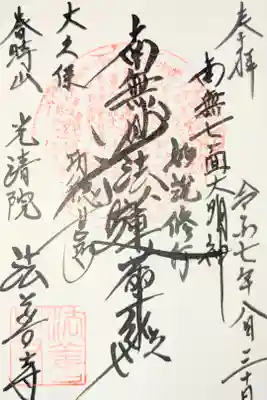 奉拝
南無七面大明神
令和七年八月三十日
如説修行
南無妙法蓮華経
大久保
春時山 光清院 法善寺